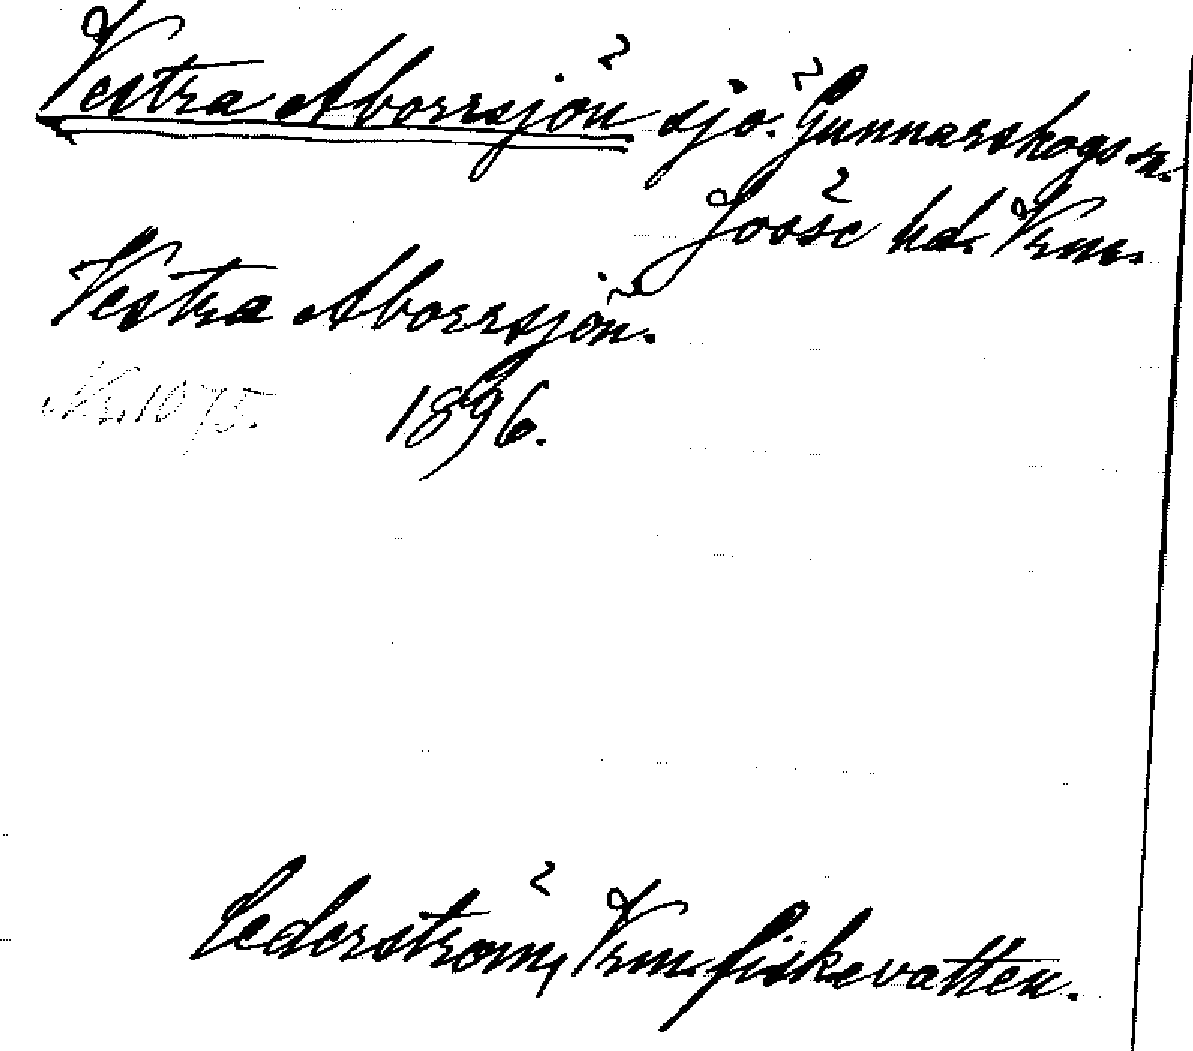 Vestra Aborrsjön sjö. Gunnarskogs sn.
Jösse hd. Vrm.
Vestra Aborrsjön.
Nr. 1075. 1896.
Cederström, Vrm. fiskevatten.